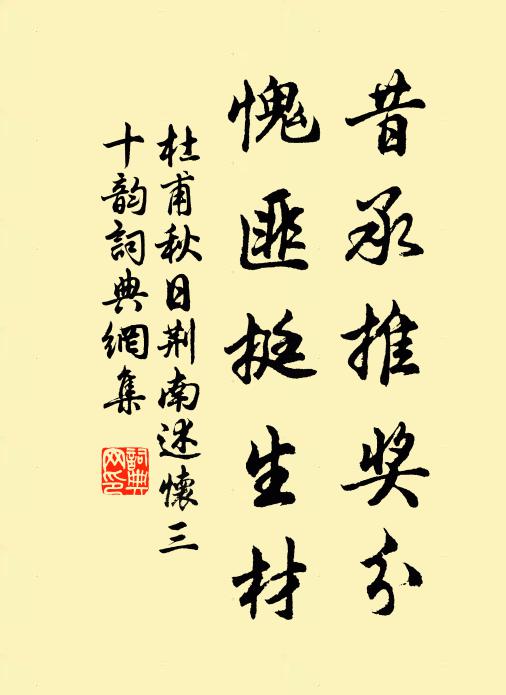 昔承推奖分
愧匪挺生材
杜甫秋日荆南述懷三
十韵詞典網集
詞典网印